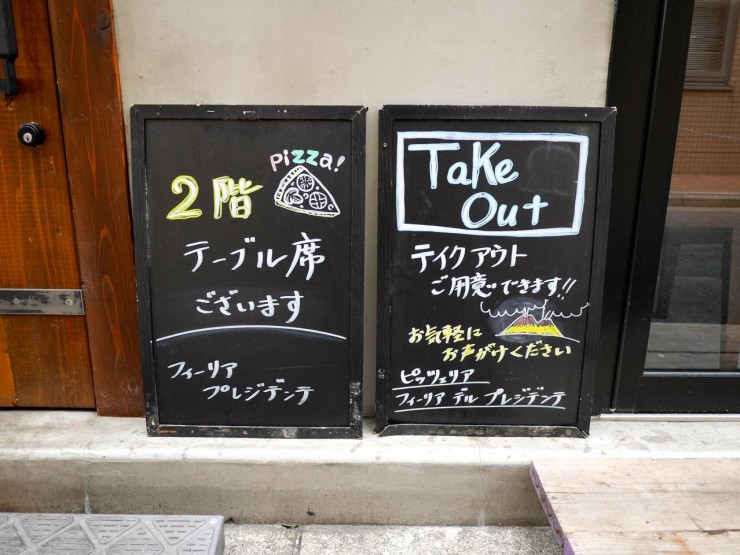 pizza!
2階
テーブル席
ございます
フィーリア
プレジデンテ
Take
Out
テイクアウト
ご用意できます!!
お気軽に
お声がけください
ピッツェリア
フィーリア デル プレジデンテ